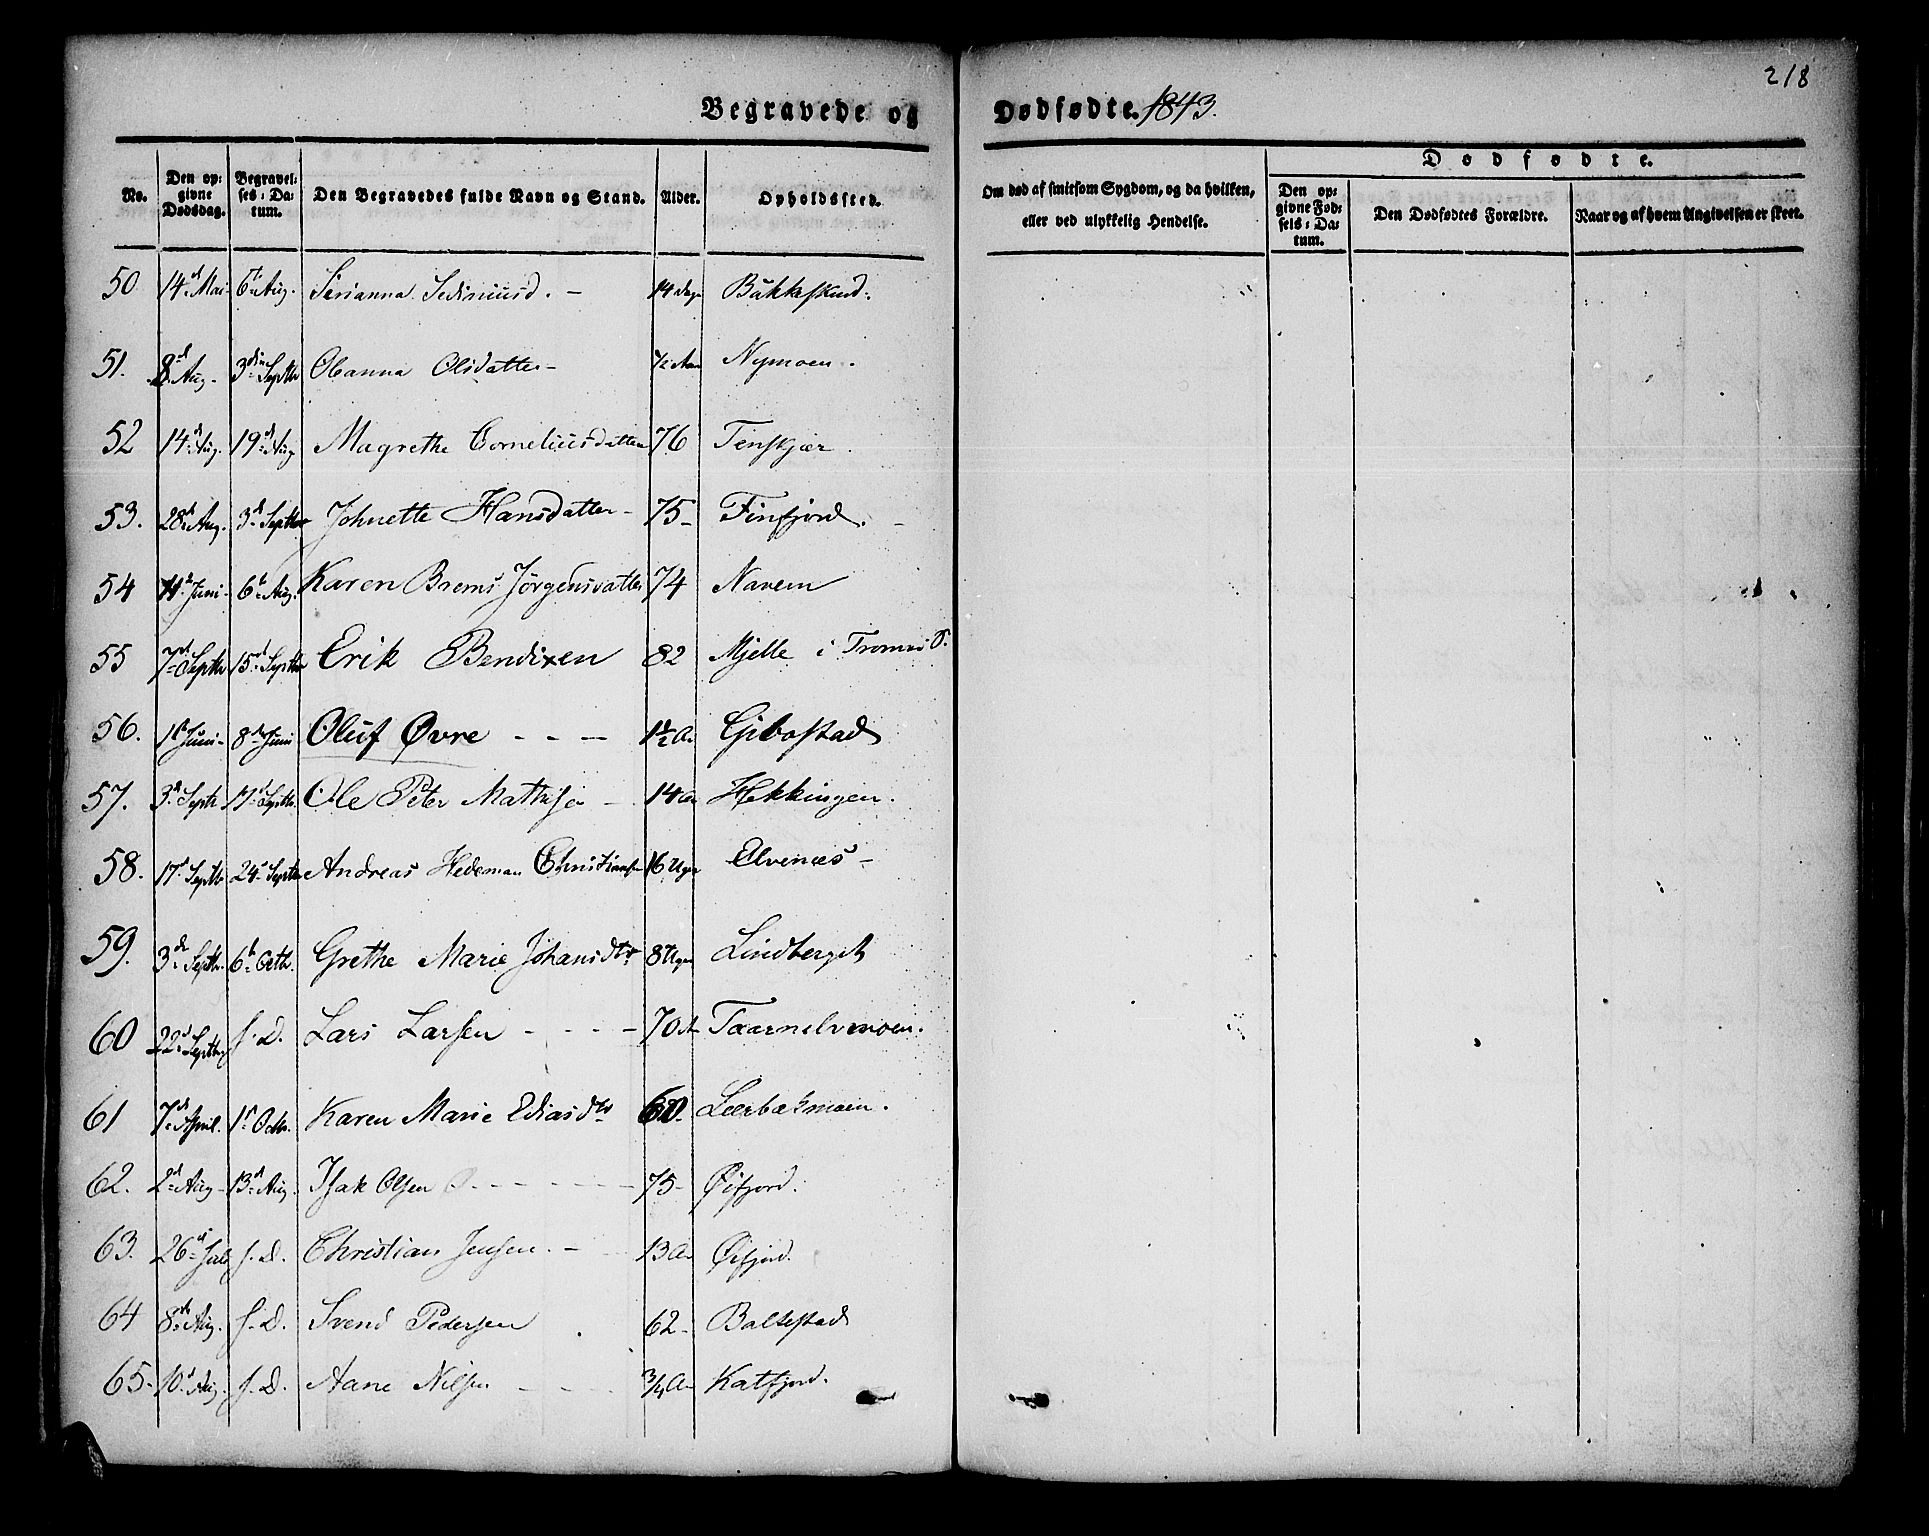 218
Begravede og Dødfødte. 1843.
No. Den opgivne Dødsdag. Begravelses-Datum. Den Begravedes fulde Navn og Stand. Alder. Opholdssted. Om død af smitsom Sygdom, og da hvilken, eller ved ulykkelig Hendelse. Dødfødte. Den opgivne Fødsels-Datum. Den Dødfødtes Forældre. Naar og af hvem Angivelsen er skeet.
50 14d Mai 6te Aug. 14 dage
51. 8d Aug. 3die Septbr Olianna Olsdatter 1/2 Aar Nymoen.
52 14d Aug. 19d Aug Magrethe Corneliusdatter 76 Tenskjær.
53. 28d Aug. 3d Septbr Johnette Hansdatter 75 Finfjord.
54 Juni 6t Aug. Karen Brems Jørgensdatter 74 Navern
55 7d Septbr 15d Septbr Erik Bendixen 82 Mjelle i Tromsø S.
56. 1t Juni 8d Juni Oluf Øvre 1 1/2 A. Gibostad
57. 3d Septbr 17d Septbr. Ole Peter Mathisen 14 A. Hekkingen.
58. 17d Septbr 24d Septbr Andreas Hedeman Christiansen 16 Uger Elvenæs
59. 3de Septbr. 6t Octb. Grethe Marie Johansdtr 8 Uger Lindberget
60 22d Septbr s. D. Lars Larsen 70 A Taarnelvmoen.
61 7de April. 1t Octb. Karen Marie Eliasdtr 60 Leerbækmoen.
62. 2d Aug 13d Aug. Isak Olsen 75 Øifjord.
63. 26d Juli s. D. Christian Jensen. 13 A. Øifjord.
64 8de Aug. s. D. Svend Pedersen 62 Baltestad
65. 10d Aug. s. D. Aane Nilsen 3/4 A. Katfjord.